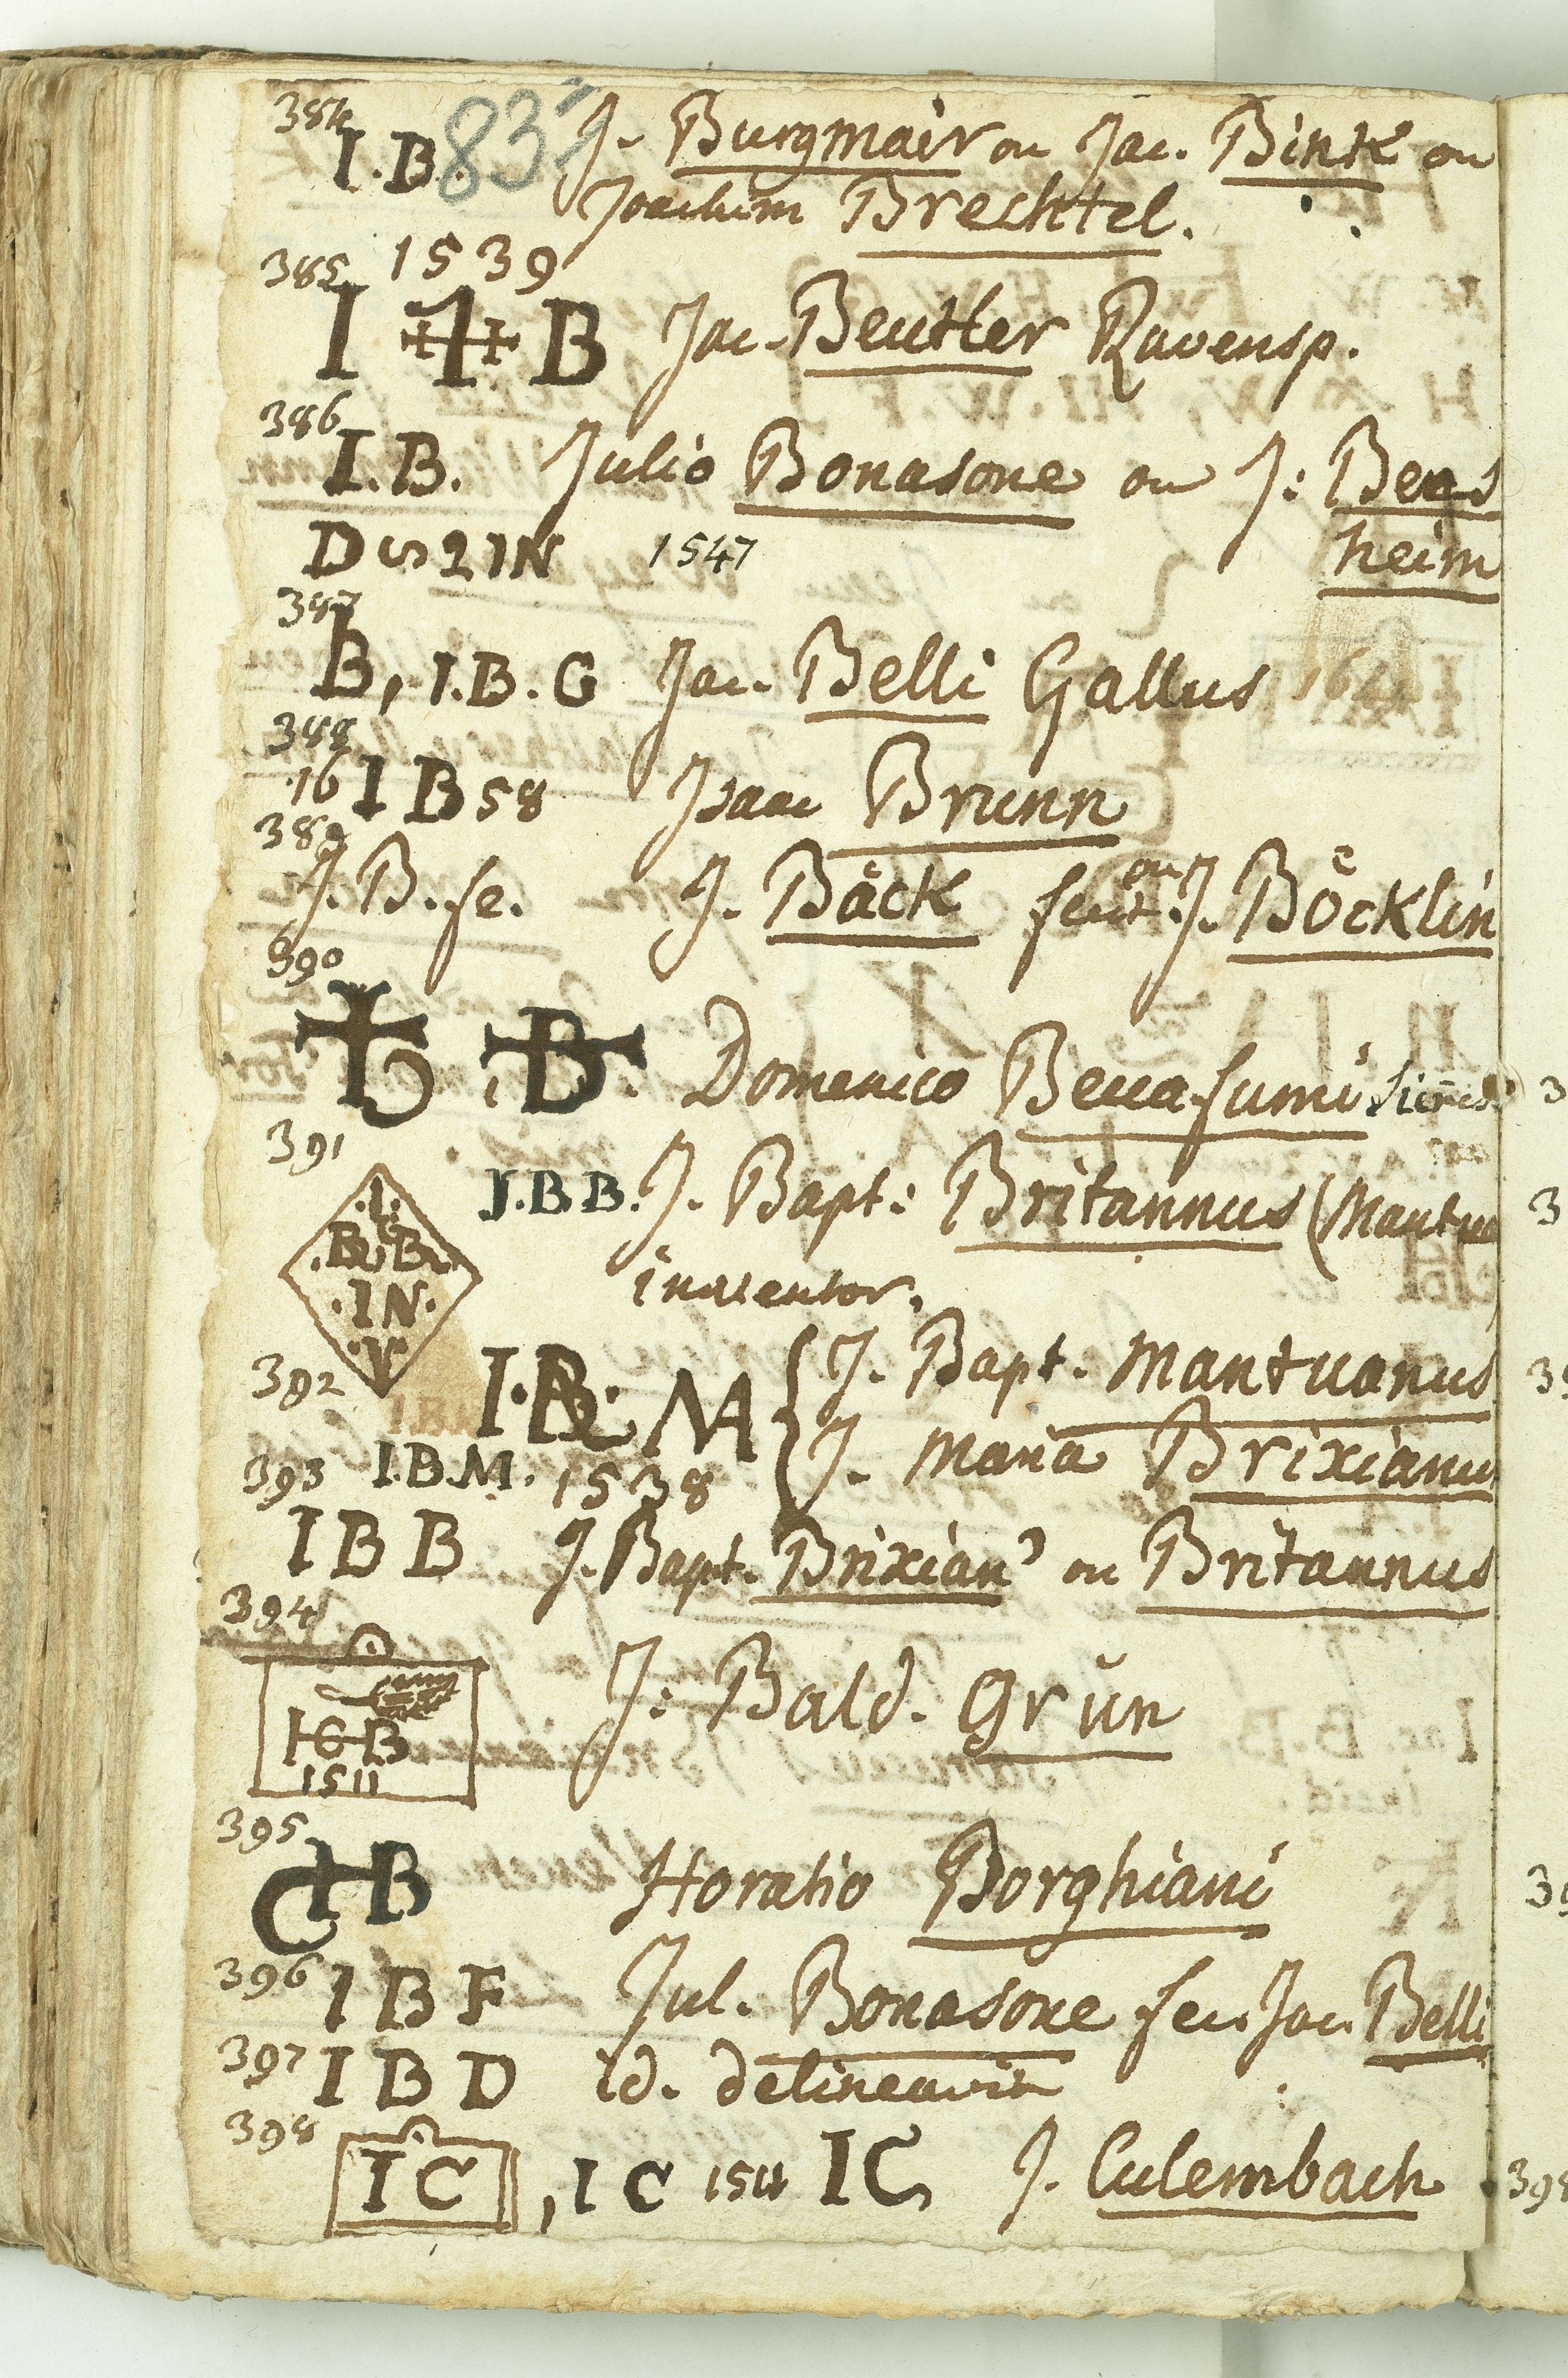 384
I.B. 83 J. Burgmair ou Jac. Bink ou
Joachim Brechtel.
385 1539
I B Jac. Beutler Ravensp.
386
I.B. Julio Bonasone ou J: Bens
heim
1547
387
B, I.B.G Jac. Belli Gallus 164
388
16 I B 58 Isaac Brunn
389
J.B.fe. J. Bäck fecit ou J. Böcklin
390
B Domenico Beccafumi
391
J.B.B. J. Bapt: Britannus (Mantua
inventor.
.I.
.B.B.
.IN.
.V.
392
I.B. M { J. Bapt. Mantuanus
J. Maria Brixianu
393 I.B.M. 1538
I B B J. Bapt. Brixian' ou Britannus
394
J: Bald. Grün
I G B
1511
395
C I B Horatio Borghiani
396 I B F Jul. Bonasone fec. Jac. Belli
397 I B D id. delineavit
398
I C , I C 1511 I C J. Culembach 398